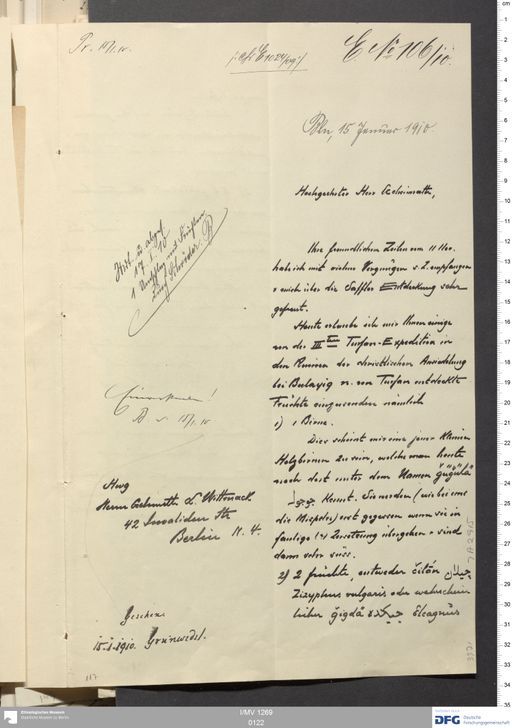 Pr. 15/I. 10.
E No 106/10.
Bln, 15 Januar 1910.
Hochgeehrter Herr Geheimrath,
Ihre freundlichen Zeilen vom 11 Nov.
habe ich mit vielem Vergnügen s. Z. empfangen
u mich über die Safflor Entdeckung sehr
gefreut.
Heute erlaube ich mir Ihnen einige
von der III Turfan-Expedition in
den Ruinen der christlichen Ansiedelung
bei Bulayiq n. von Turfan entdeckte
Früchte einzusenden nämlich
1) 1 Birne.
Dies scheint mir eine jener kleinen
Holzbirnen zu sein, welche man heute
noch dort unter dem Namen
kennt. Sie werden (wie bei uns
die Mispeln) erst gegessen wenn sie in
faulige Zersetzung übergehen u sind
dann sehr süss.
2) 2 Früchte, entweder čilân جيلان
Zizyphus vulgaris oder wahrschein
licher ǰigdä جيكده Eleagnus
17. I. 10
Einverstanden!
Hwg
Herrn Geheimrath L Wittmack
42 Invaliden Str
Berlin N. 4.
Gesehen:
15.I.1910. Grünwedel.
117
I/MV 1269
0122
Ethnologisches Museum
Staatliche Museen zu Berlin
DFG Deutsche
Forschungsgemeinschaft